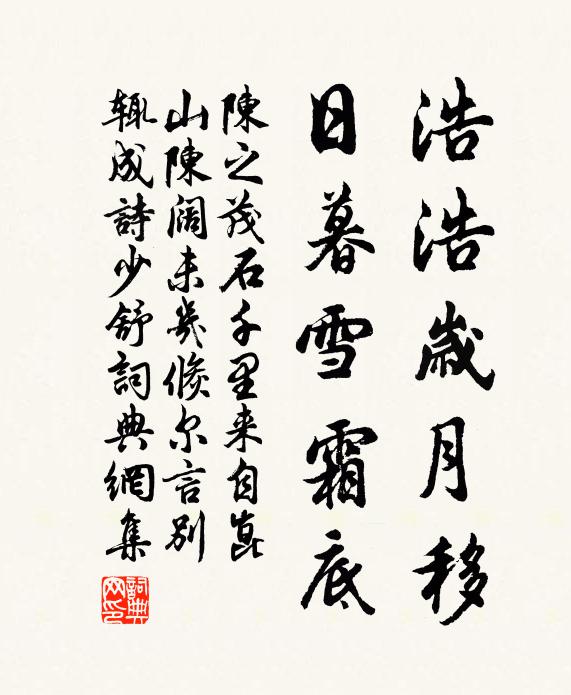 浩浩歲月移
日暮雪霜底
陳之茂石千里来自崑
山陳闊未幾倏尔言別
輒成詩少舒詞典網集
詞典網印